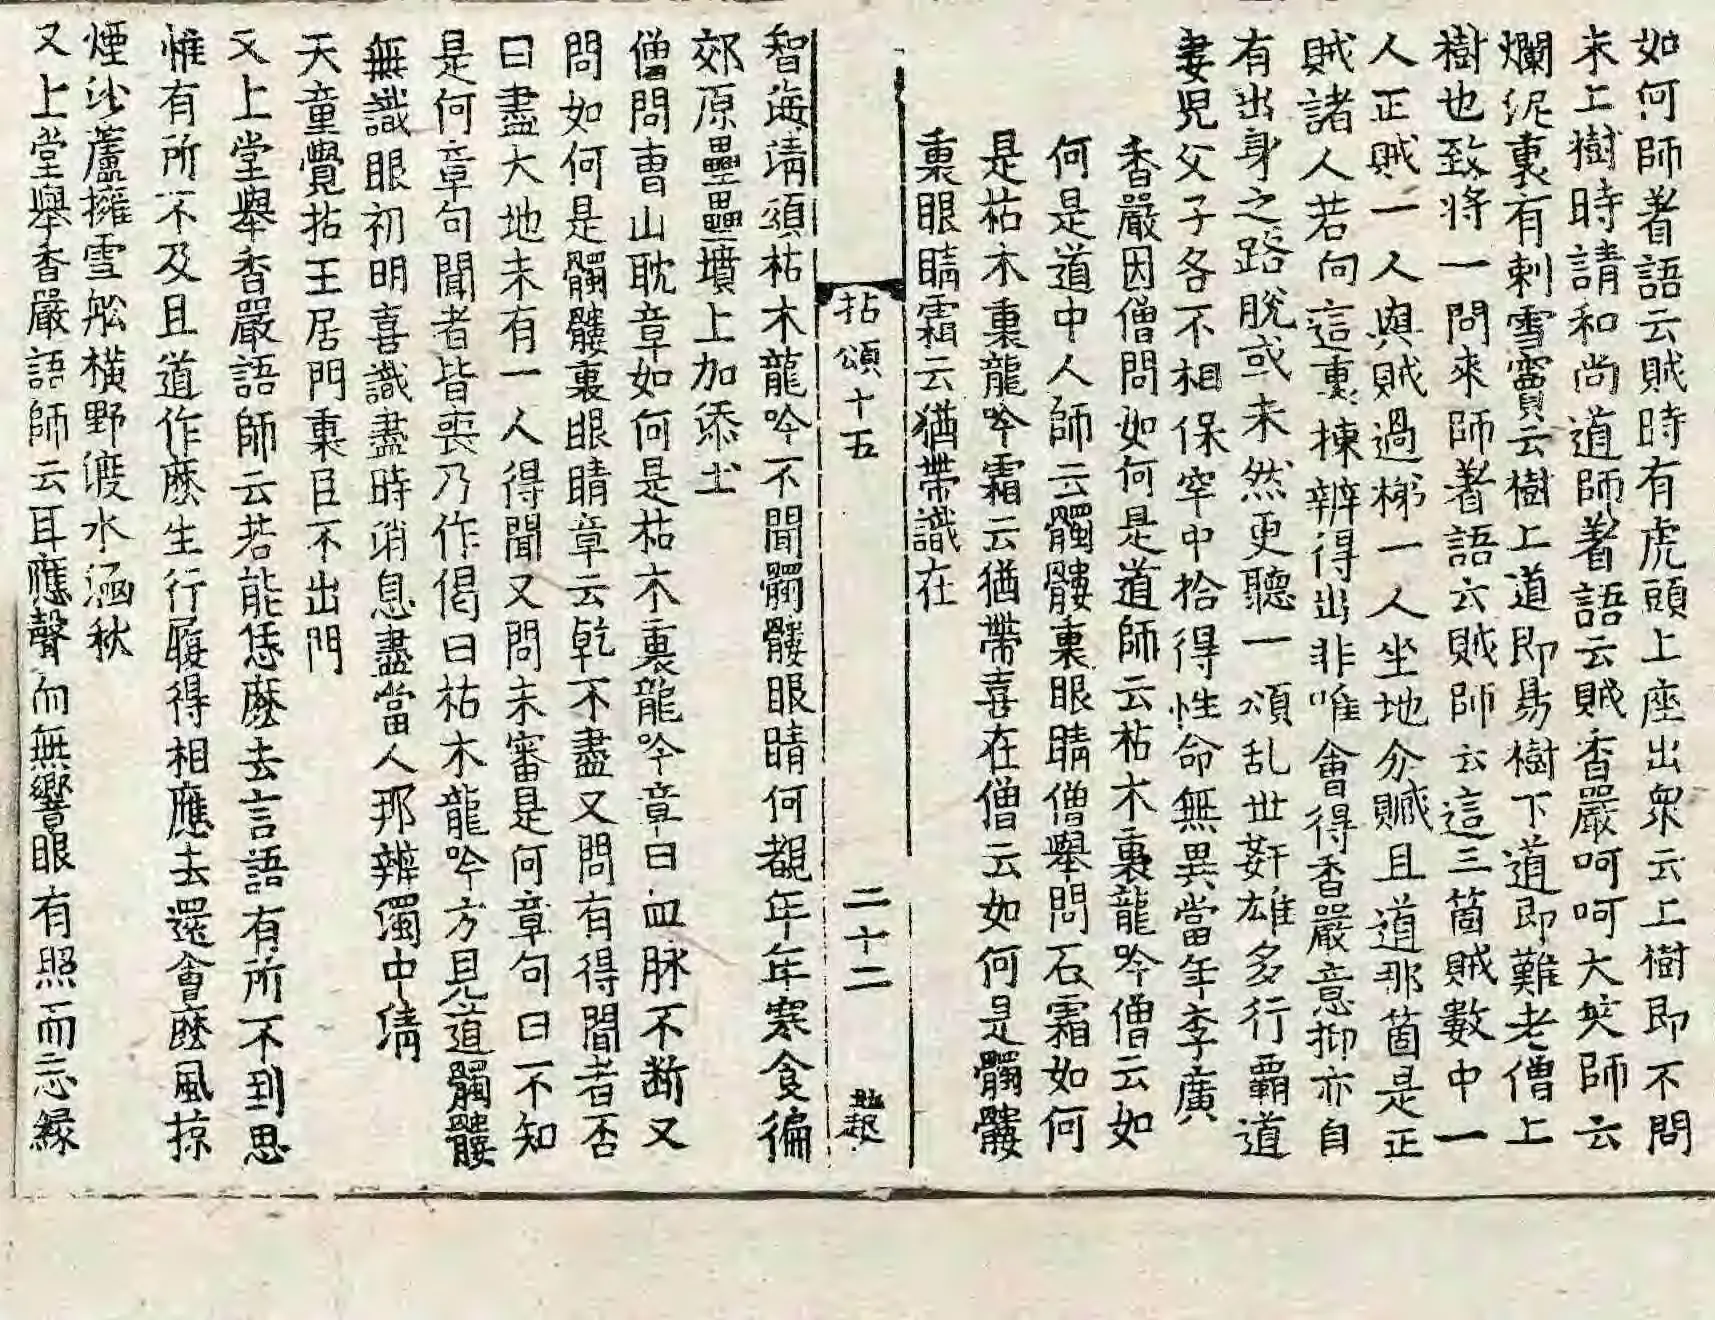 如何師著語云賊時有虎頭上座出衆云上樹即不問
未上樹時請和尚道師著語云賊香嚴呵呵大笑師云
爛泥裏有刺雪竇云樹上道即易樹下道即難老僧上
樹也致將一問來師著語云賊師云這三箇賊數中一
人正賊一人與賊過梯一人坐地分贓且道那箇是正
賊諸人若向這裏揀辨得出非唯會得香嚴意抑亦自
有出身之路脫或未然更聽一頌乱世姧雄多行覇道
妻児父子各不相保穽中拾得性命無異當年李廣
香嚴因僧問如何是道師云枯木裏龍吟僧云如
何是道中人師云髑髏裏眼睛僧舉問石霜如何
是枯木裏龍吟霜云猶帶喜在僧云如何是髑髏
裏眼睛霜云猶帶識在
拈頌十五　二十二　起
智海清頌枯木龍吟不聞髑髏眼睛何覩年年寒食徧
郊原壘壘墳上加添土
僧問曺山耽章如何是枯木裏龍吟章曰血脉不断又
問如何是髑髏裏眼睛章云乾不盡又問有得聞者否
曰盡大地未有一人得聞又問未審是何章句曰不知
是何章句聞者皆喪乃作偈曰枯木龍吟方見道髑髏
無識眼初明喜識盡時消息盡當人那辨濁中清
天童覺拈王居門裏臣不出門
又上堂舉香嚴語師云若能恁麽去言語有所不到思
惟有所不及且道作麽生行履得相應去還會麽風掠
煙沙蘆擁雪舩橫野渡水涵秋
又上堂舉香嚴語師云耳應聲而無響眼有照而忘緣